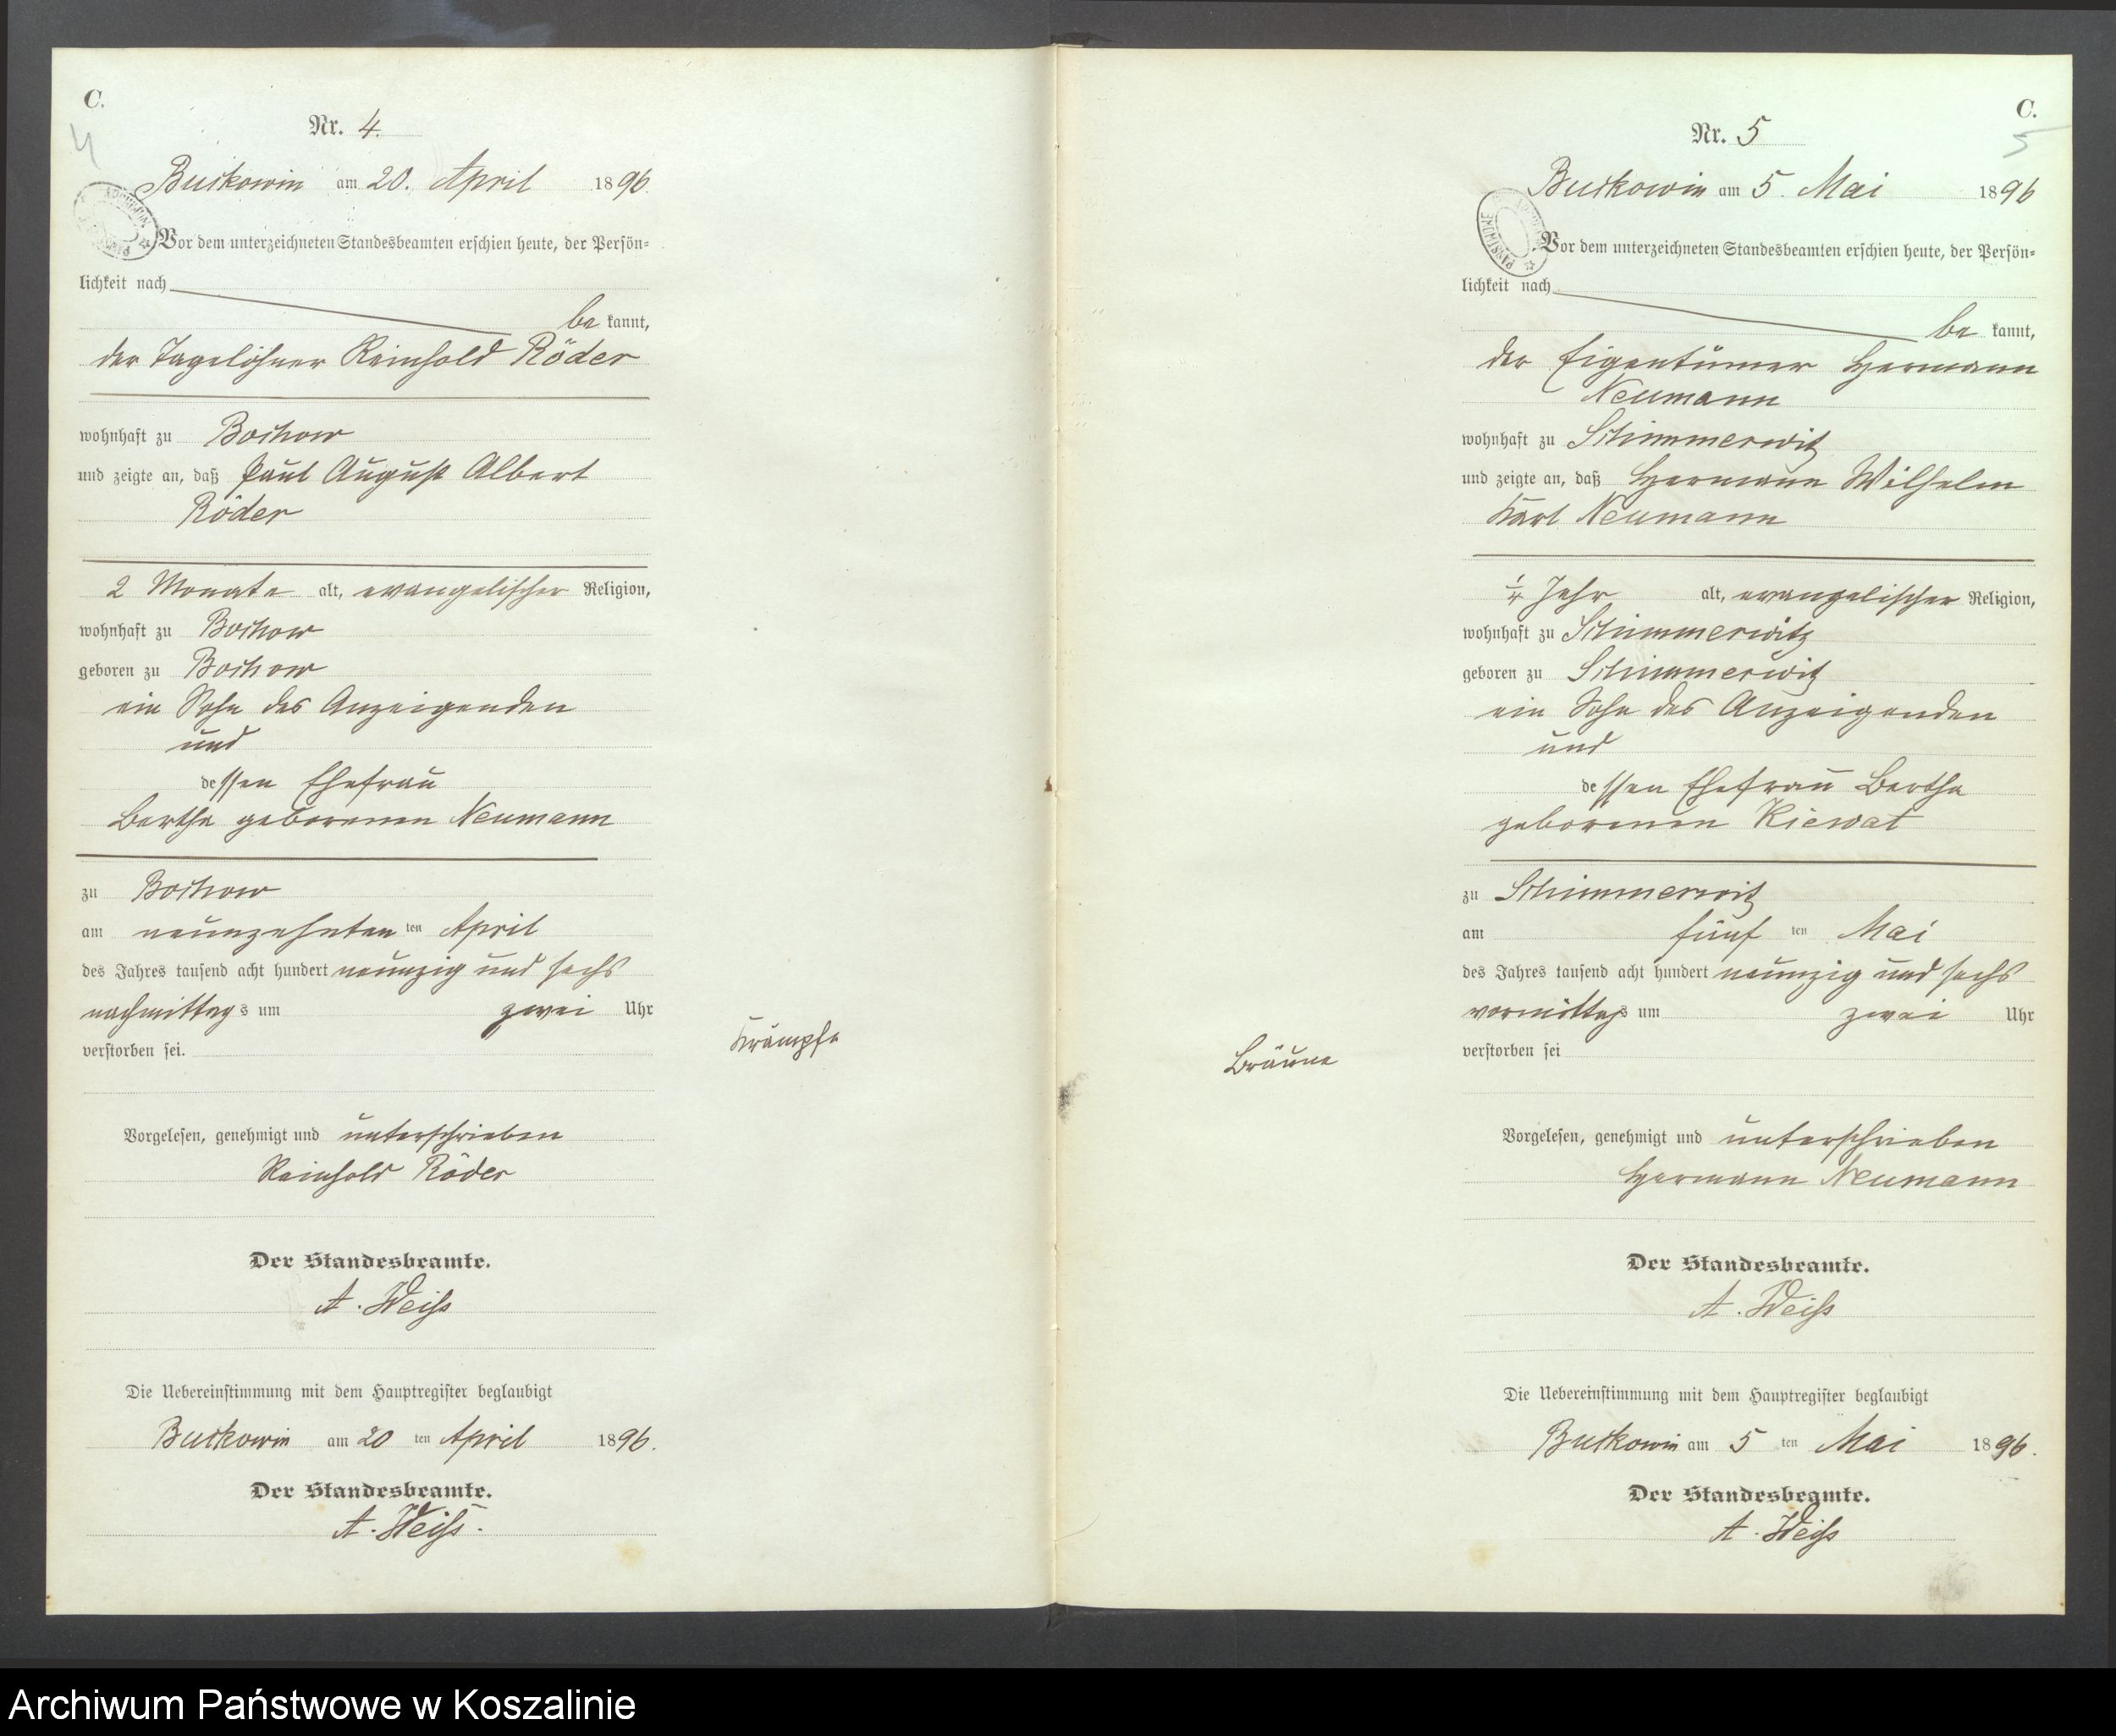 C.
4
Nr. 4.
Buckowin am 20. April 1896.
Vor dem unterzeichneten Standesbeamten erschien heute, der Persön=
lichkeit nach
be kannt,
der Tagelöhner Reinhold Röder
wohnhaft zu Bochow
und zeigte an, daß Paul August Albert
Röder
2 Monate alt, evangelischer Religion,
wohnhaft zu Bochow
geboren zu Bochow
ein Sohn des Anzeigenden
und
dessen Ehefrau
Bertha geborenen Neumann
zu Bochow
am neunzehnten ten April
des Jahres tausend acht hundert neunzig und sechs
nachmittags um zwei Uhr
verstorben sei.
Krämpfe
Vorgelesen, genehmigt und unterschrieben
Reinhold Röder
Der Standesbeamte.
A. Weiß
Die Uebereinstimmung mit dem Hauptregister beglaubigt
Buckowin am 20 ten April 1896.
Der Standesbeamte.
A. Weiß.
C.
5
Nr. 5
Buckowin am 5. Mai 1896
Vor dem unterzeichneten Standesbeamten erschien heute, der Persön=
lichkeit nach
be kannt,
der Eigentümer Hermann
Neumann
wohnhaft zu Schimmerwitz
und zeigte an, daß Hermann Wilhelm
Karl Neumann
1/4 Jahr alt, evangelischer Religion,
wohnhaft zu Schimmerwitz
geboren zu Schimmerwitz
ein Sohn des Anzeigenden
und
dessen Ehefrau Bertha
geborenen Kiewat
zu Schimmerwitz
am fünf ten Mai
des Jahres tausend acht hundert neunzig und sechs
vormittags um zwei Uhr
verstorben sei
Bräune
Vorgelesen, genehmigt und unterschrieben
Hermann Neumann
Der Standesbeamte.
A. Weiß
Die Uebereinstimmung mit dem Hauptregister beglaubigt
Buckowin am 5 ten Mai 1896.
Der Standesbeamte.
A. Weiß
Archiwum Państwowe w Koszalinie